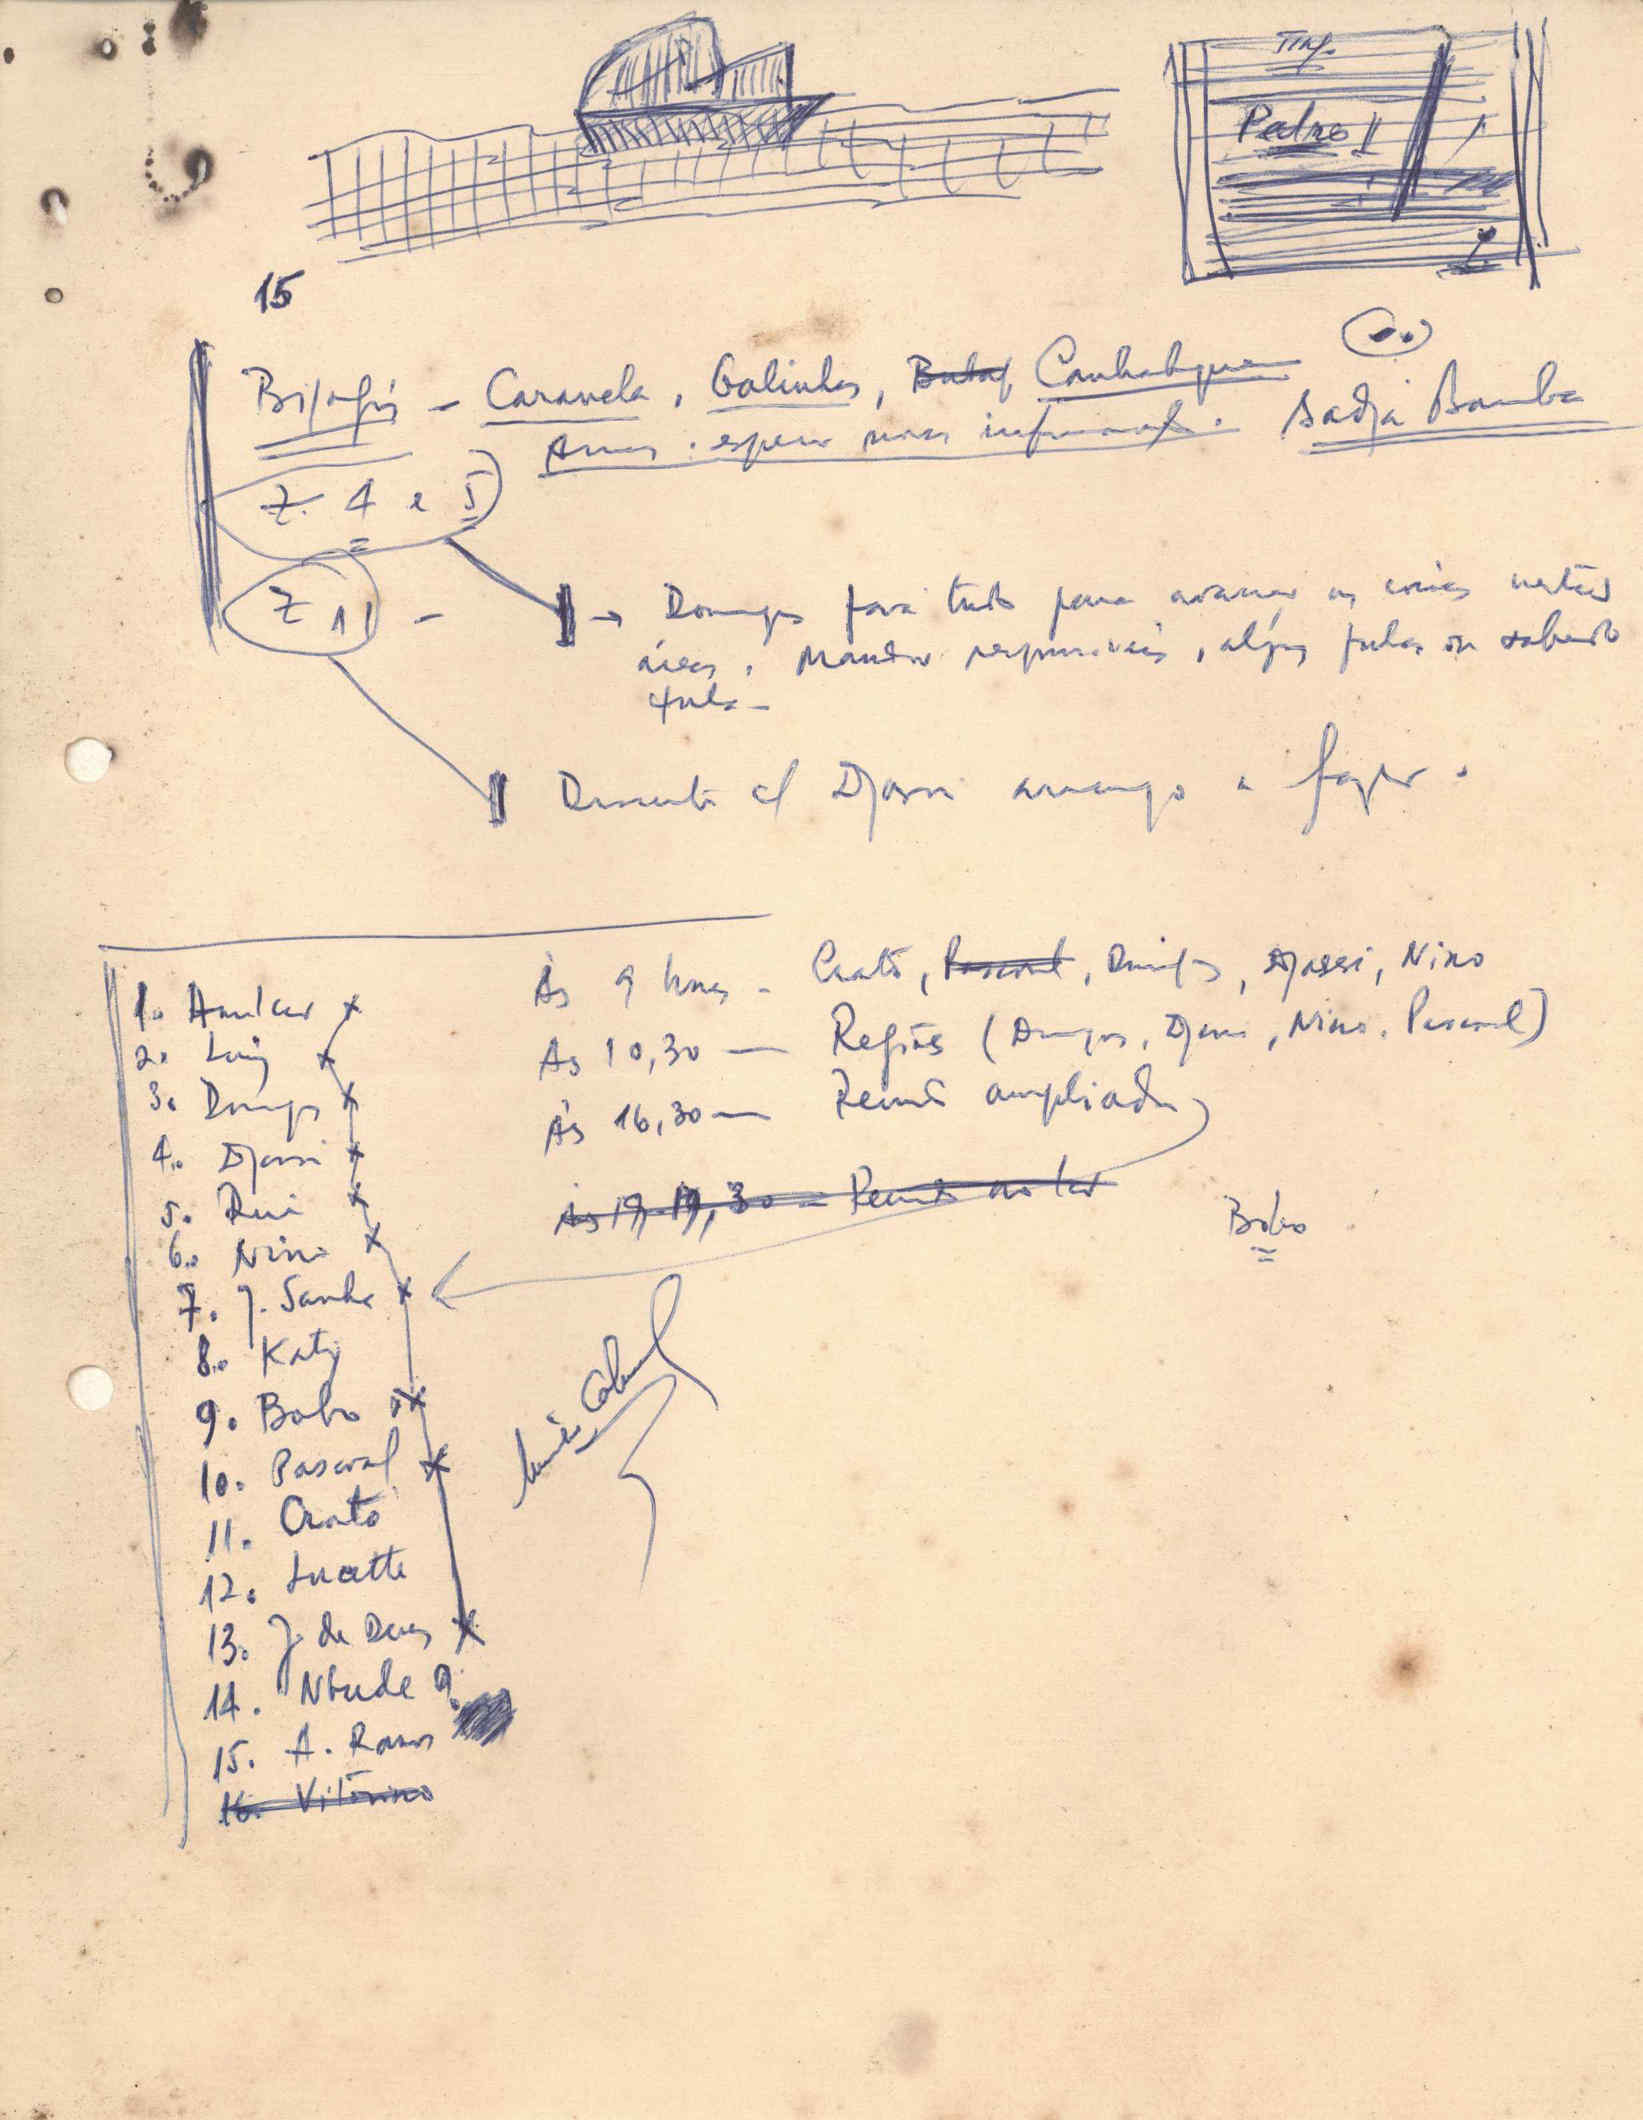 Pedro II
15
Bijagós - Caravela, Galinhas, Canhabaque
Armas: espero mais informaç. Sadjá Bamba
Z. 4 e 5
Z 11 - → Domingos fará tudo para avançar as coisas nestas
áreas. Mandar responsáveis, alguns fulas ou sabendo
fula -
Discuti c/ Djassi avanço a fazer.
Às 9 horas - Crato, Pascoal, Domingos, Djassi, Nino
1. Amilcar x
2. Luiz x
As 10,30 — Regiões (Domingos, Djassi, Nino, Pascoal)
3. Domingos x
Às 16,30 — Reunião ampliada
4. Djassi x
5. Rui x
Às 19,30 - Reunião
Bobo
6. Nino x
7. J. Sanha x
8. Katy
9. Bobo x
10. Pascoal x
11. Crato
12. Lucette
13. J. de Deus x
14. Nbude ?
15. A. Ramos
16. Vitorino